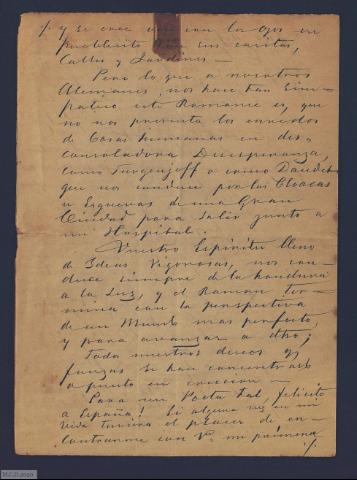 y se cree ver con los ojos un
pueblecito con sus casitas,
Calles y Jardines —
Pero lo que a nosotros
Alemanes, nos hace tan Sim-
patico este Romance es, que
no nos presenta los enredos
de Cosas humanas en des-
consoladora Desesperanza,
como Turgenjeff o como Daudet
que nos conduce por las Cloacas
de una Gran
Ciudad para Salir junto a
un Hospital.
Vuestro Espíritu lleno
de Ideas Vigorosas, nos con-
duce siempre de la hondura
a la Luz, y el Roman ter-
mina con la perspectiva
de un Mundo mas perfecto,
y para avanzar a otro;
Toda nuestros deseos y
fuerzas se han concentrado
a punto en
Para un Poeta tal, felicito
a España! Si alguna vez en mi
Vida tuviera el placer de en-
contrarme con Vd. mi primera